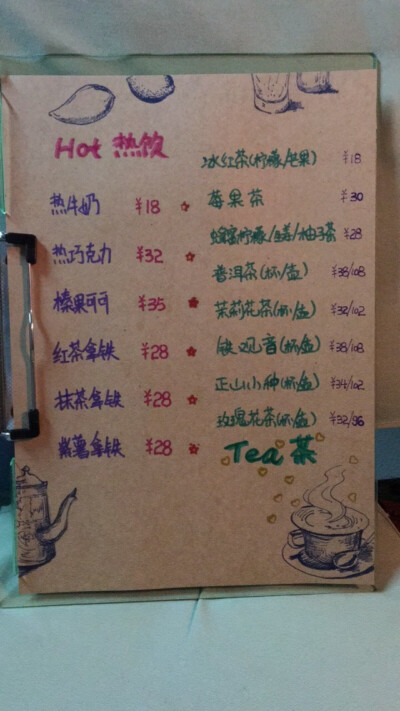 Hot 热饮
热牛奶 ¥18
热巧克力 ¥32
榛果可可 ¥35
红茶拿铁 ¥28
抹茶拿铁 ¥28
紫薯拿铁 ¥28
冰红茶(柠檬/芒果) ¥18
莓果茶 ¥30
蜂蜜柠檬/生姜/柚子茶 ¥28
普洱茶(杯/壶) ¥38/108
茉莉花茶(杯/壶) ¥32/102
铁观音(杯/壶) ¥38/108
正山小种(杯/壶) ¥34/102
玫瑰花茶(杯/壶) ¥32/96
Tea 茶